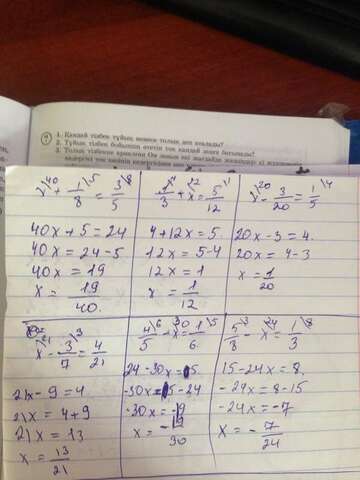 1. Қандай тізбек тұйық немесе толық деп аталады?
2. Тұйық тізбек бойынша өтетін ток қандай заңға бағынады?
3. Толық тізбекке арналған Ом заңын
x^40 + 1/8 \5 = 3/5 \8
40x + 5 = 24
40x = 24 - 5
40x = 19
x = 19/40.
1/3 \4 + x \12 = 5/12 \1
4 + 12x = 5
12x = 5 - 4
12x = 1
x = 1/12
x^20 - 3/20 = 1/5 \4
20x - 3 = 4.
20x = 4 - 3
x = 1/20
x^21 - 3/7 \3 = 4/21
21x - 9 = 4
21x = 4 + 9
21x = 13
x = 13/21
4/5 \6 - x^30 = 1/6 \5
24 - 30x = 5
-30x = 5 - 24
-30x = -19
x = -19/30
5/8 \3 - x^24 = 1/3 \8
15 - 24x = 8.
-24x = 8 - 15
-24x = -7
x = - 7/24